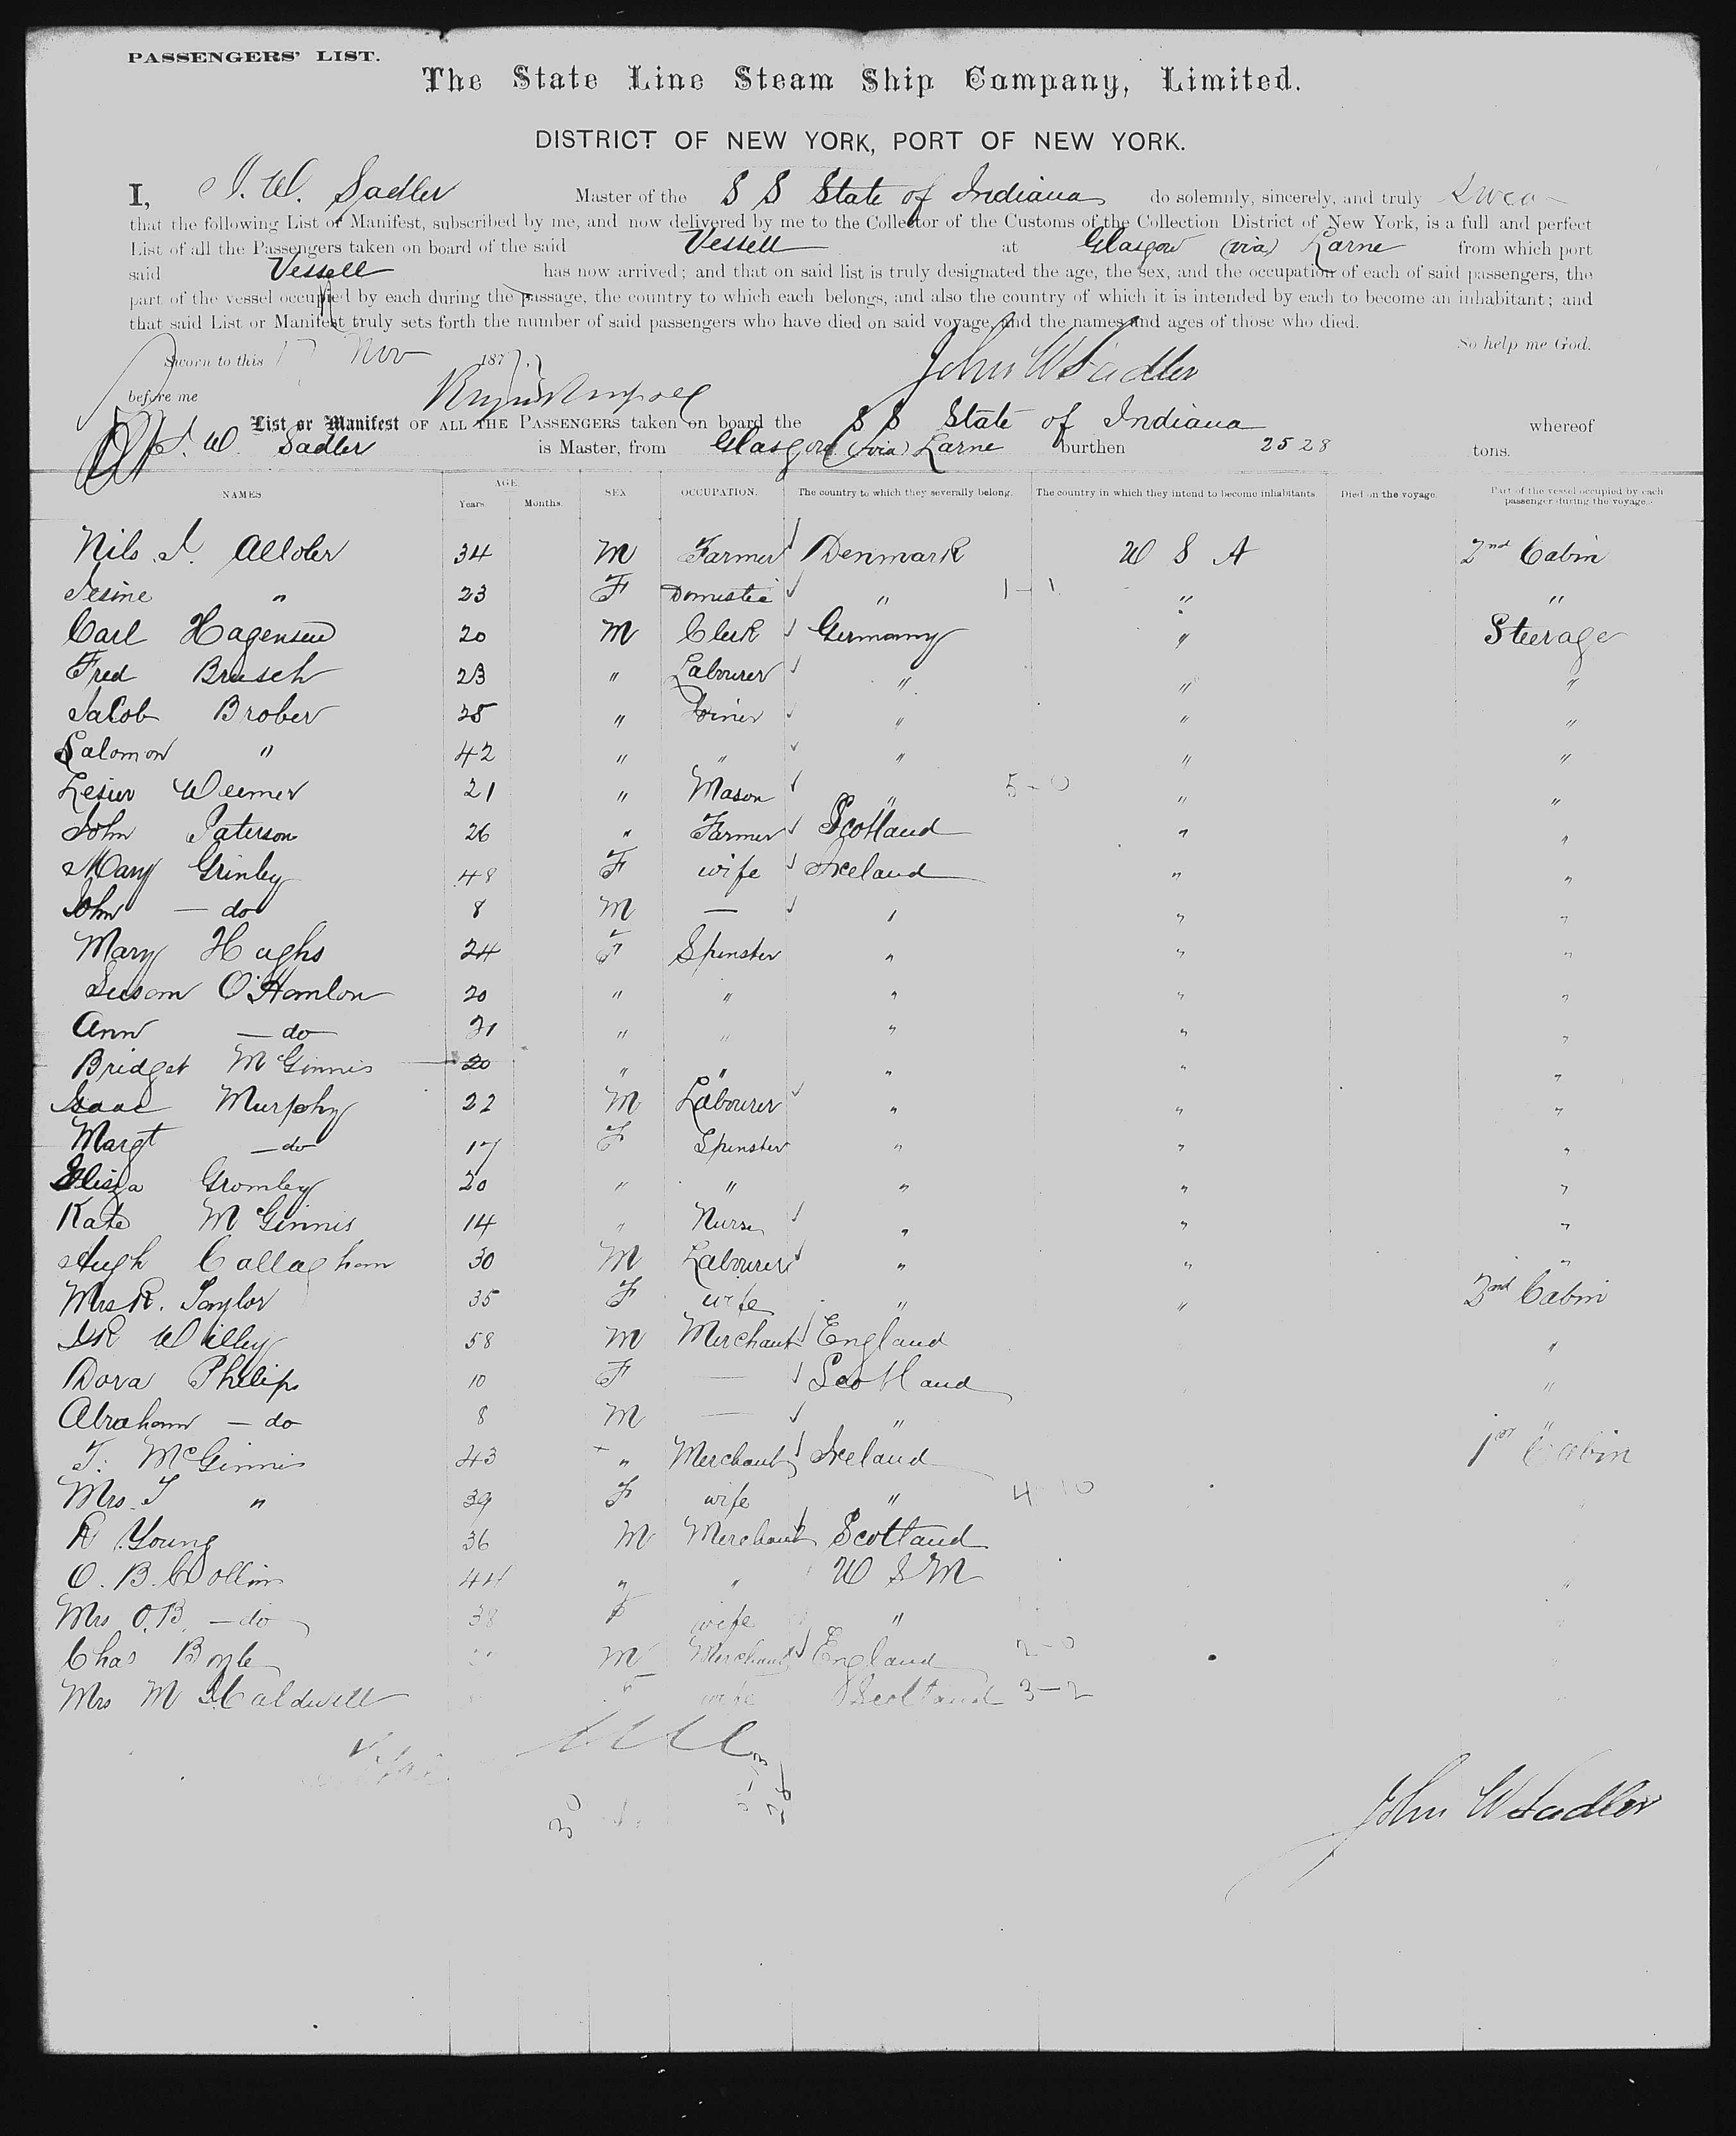 PASSENGERS' LIST.
The State Line Steam Ship Company, Limited.
DISTRICT OF NEW YORK, PORT OF NEW YORK.
I, J. W. Sadler Master of the S S State of Indiana do solemnly, sincerely, and truly
that the following List or Manifest, subscribed by me, and now delivered by me to the Collector of the Customs of the Collection District of New York, is a full and perfect
List of all the Passengers taken on board of the said Vessell at Glasgow (via) Larne from which port
said Vessell has now arrived; and that on said list is truly designated the age, the sex, and the occupation of each of said passengers, the
part of the vessel occupied by each during the passage, the country to which each belongs, and also the country of which it is intended by each to become an inhabitant; and
that said List or Manifest truly sets forth the number of said passengers who have died on said voyage, and the names and ages of those who died.
So help me God.
Sworn to this 17 Nov 187
John W Sadler
before me
List or Manifest OF ALL THE PASSENGERS taken on board the S S State of Indiana whereof
J. W. Sadler is Master, from Glasgow (via) Larne burthen 2528 tons.
NAMES AGE Years. Months. SEX OCCUPATION. The country to which they severally belong. The country in which they intend to become inhabitants Died on the voyage. Part of the vessel occupied by each passenger during the voyage.
Nils J. 34 M Farmer Denmark U S A 2nd Cabin
Jesine " 23 F Domestic " 1-1 " "
Carl Hagensen 20 M Clerk Germany " Steerage
Fred Brusch 23 " Labourer " " "
Jacob Brober 25 " Joiner " " "
Salomon " 42 " " " " "
Weemer 21 " Mason " 5-0 " "
John Paterson 26 " Farmer Scotland " "
Mary Grinley 48 F wife Ireland " "
John — do 8 M — " " "
Mary Hughs 24 F Spinster " " "
Susan O'Hanlon 20 " " " " "
Ann — do 21 " " " " "
Bridget McGinnis 20 " " " " "
Isaac Murphy 22 M Labourer " " "
Margt — do 17 F Spinster " " "
Eliza Gromley 20 " " " " "
Kate McGinnis 14 " Nurse " " "
Hugh Callaghan 30 M Labourer " " "
Mrs R. Taylor 35 F wife " " 2nd Cabin
Willey 58 M Merchant England "
Dora Philips 10 F — Scotland "
Abraham — do 8 M — " "
T. McGinnis 43 " Merchant Ireland 1st Cabin
Mrs T " 39 F wife " 4 10
R Young 36 M Merchant Scotland
O. B. Collins 44 " " U S M "
Mrs O.B. — do 38 F wife "
Chas Boyle M Merchant England 2-0
Mrs M Caldwell F wife Scotland 3-2
30
John W Sadler